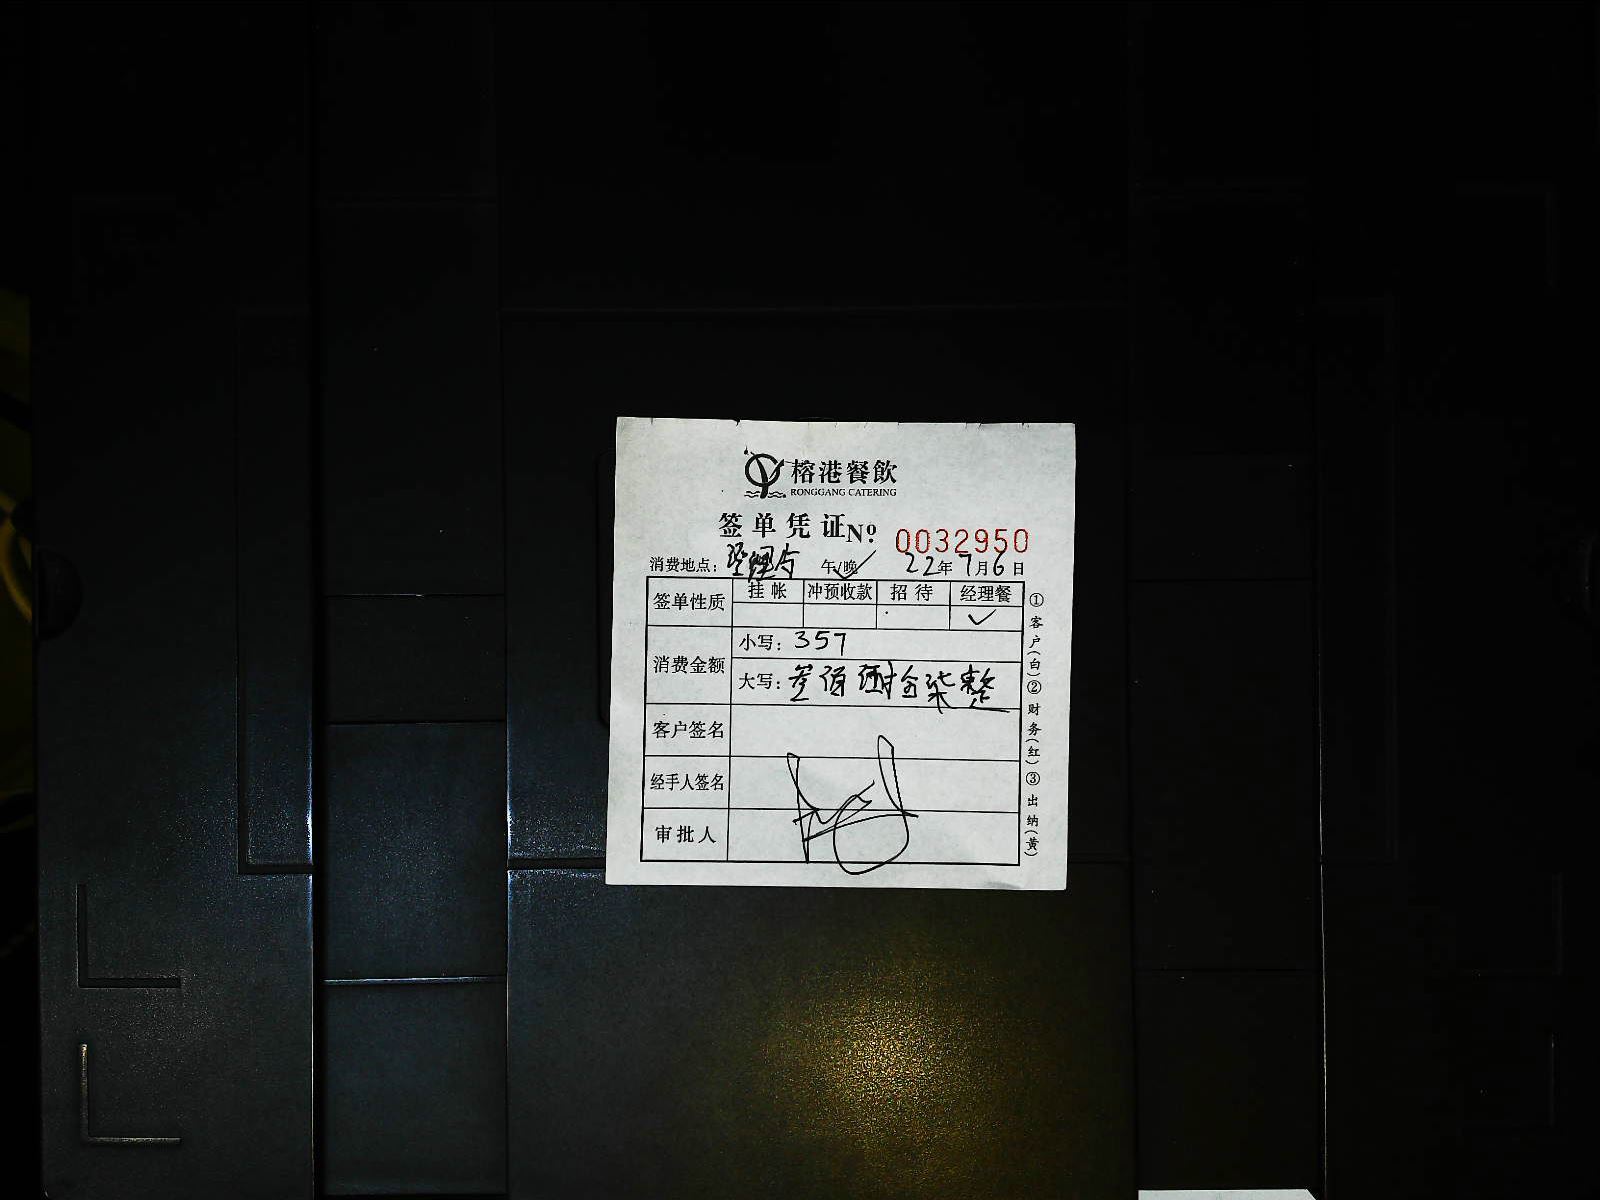 榕港餐飲
RONGGANG CATERING
签单凭证 Nº 0032950
消费地点: 经理 午/晚 22年7月6日
签单性质 挂帐 冲预收款 招待 经理餐
✓
消费金额 小写: 357
大写: 叁佰 柒整
客户签名
经手人签名
审批人
①客户(白)②财务(红)③出纳(黄)